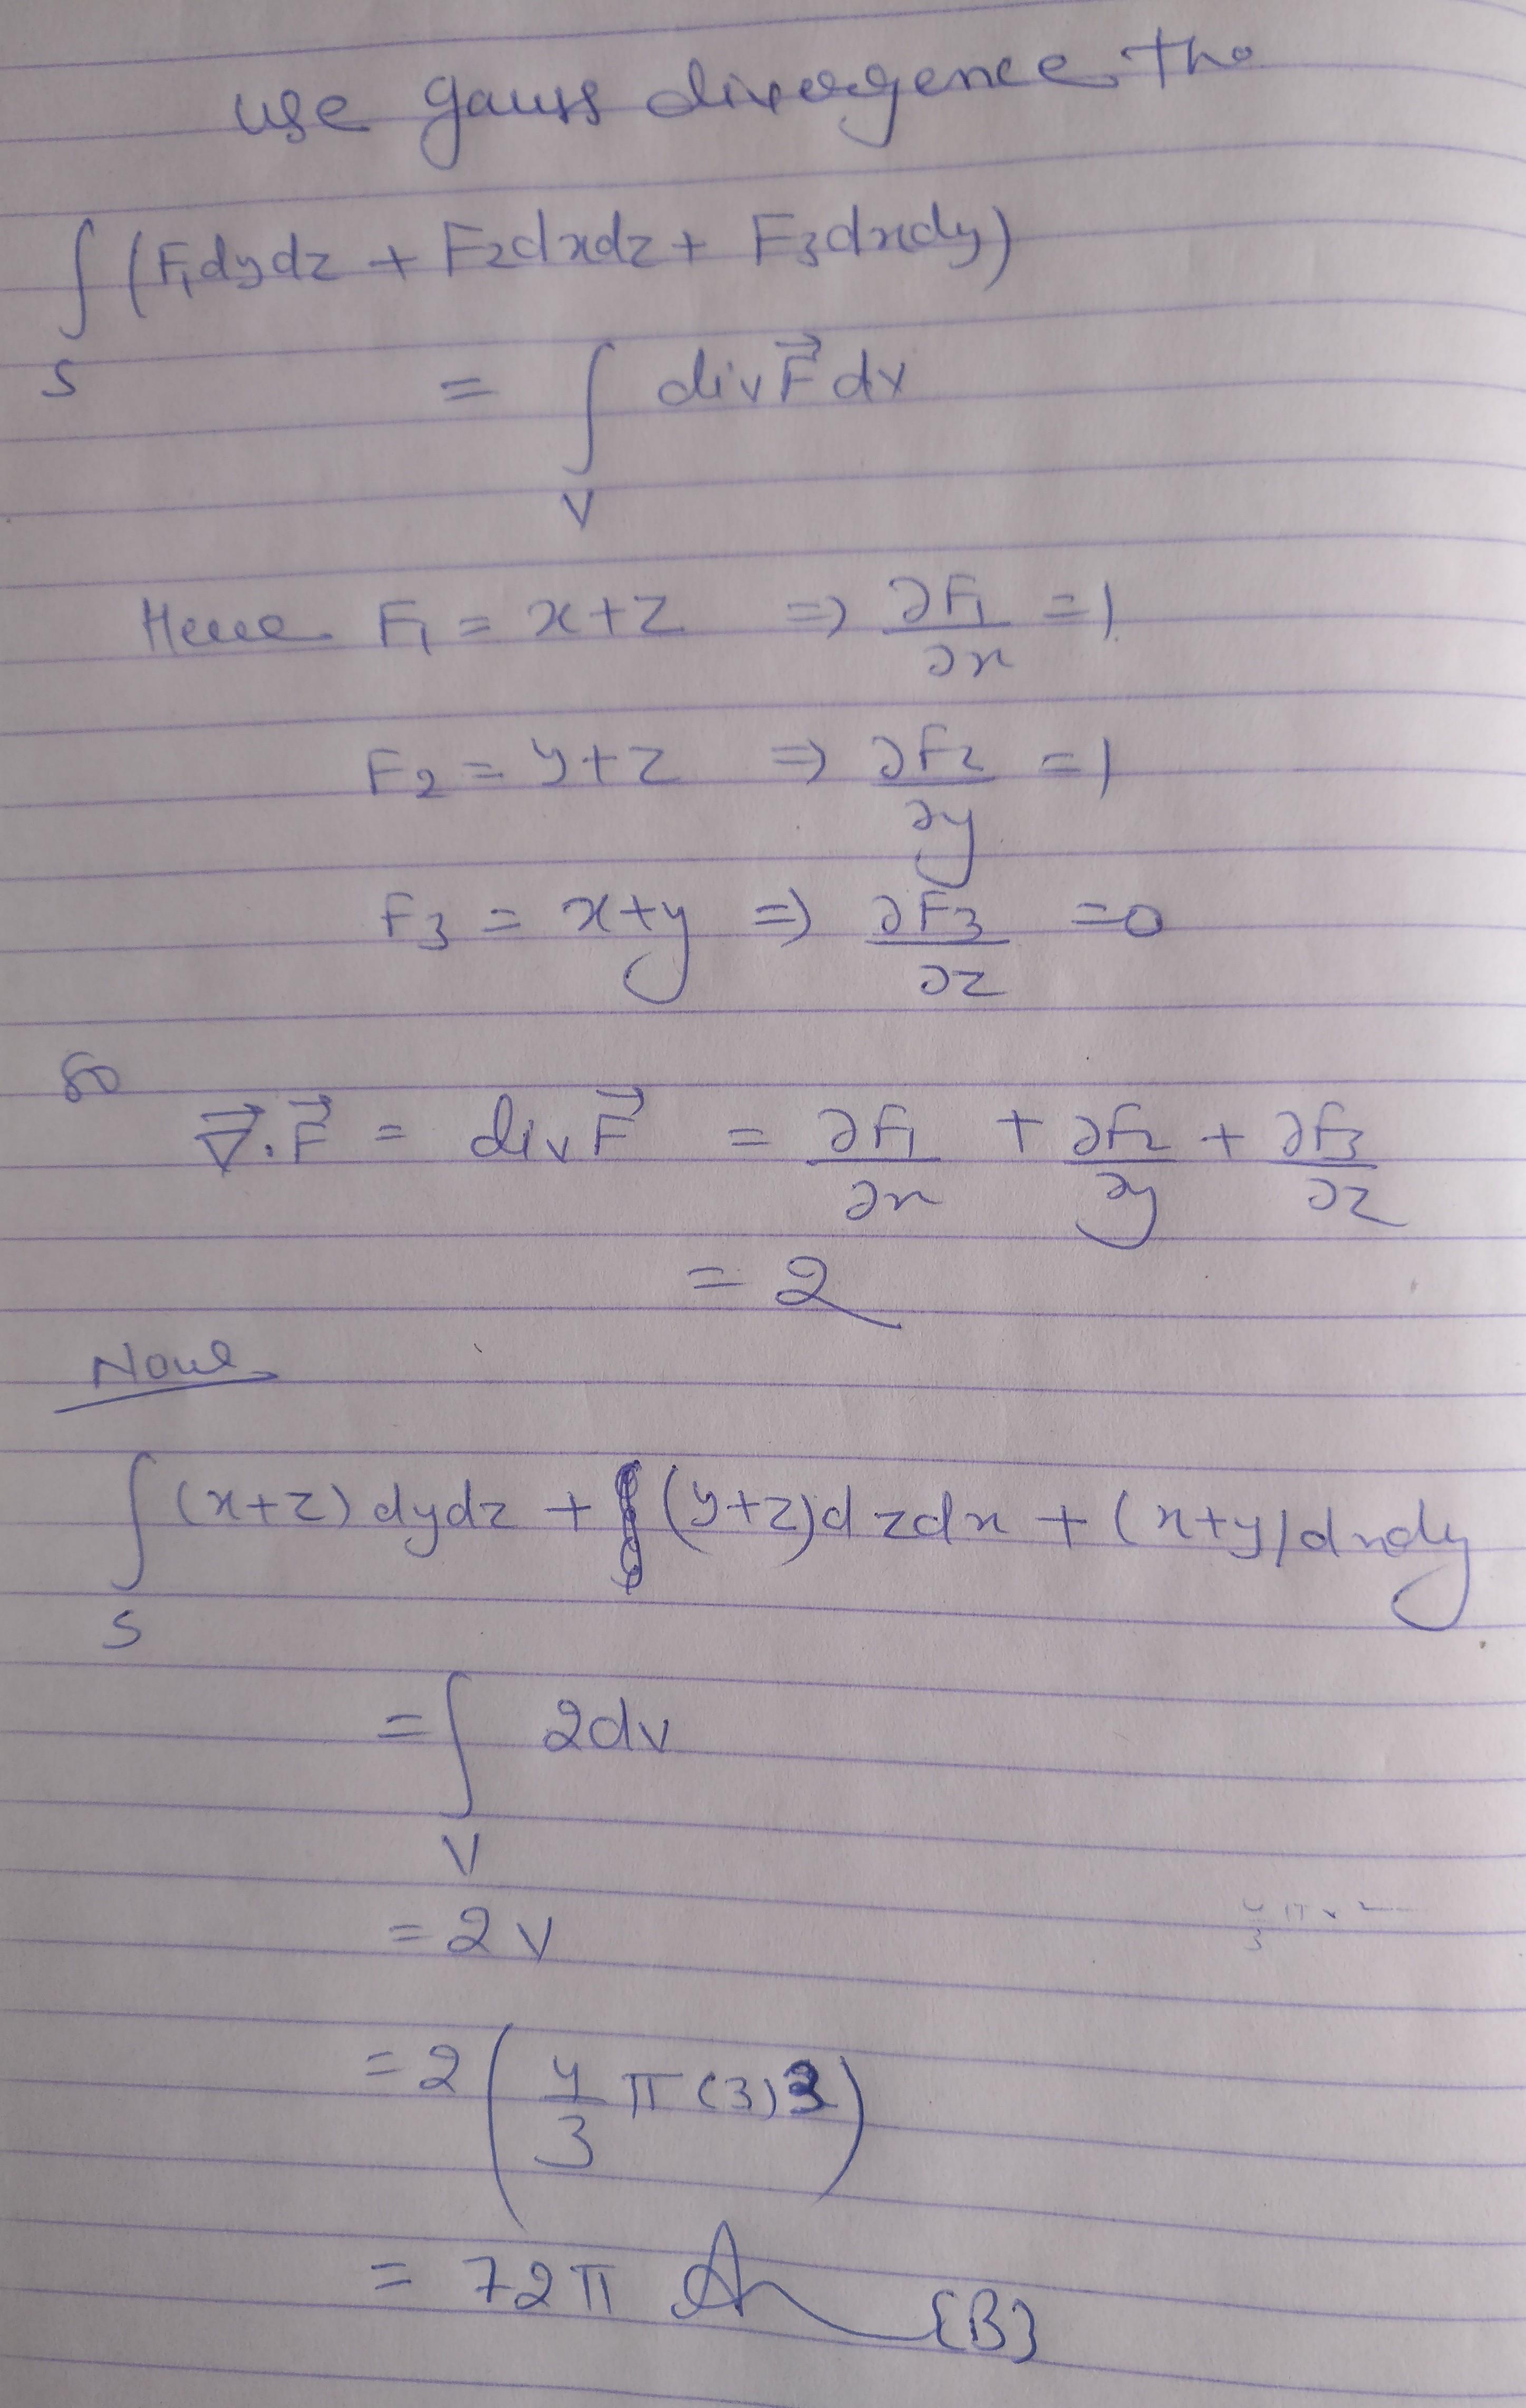 use gauss divergence tho
∫ (F₁dydz + F₂dxdz + F₃dxdy)
S
= ∫ div F⃗ dv
V
Here F₁ = x+z ⇒ ∂F₁/∂x = 1
F₂ = y+z ⇒ ∂F₂/∂y = 1
F₃ = x+y ⇒ ∂F₃/∂z = 0
So
∇⃗.F⃗ = div F⃗ = ∂F₁/∂x + ∂F₂/∂y + ∂F₃/∂z
= 2
Now
∫ (x+z) dydz + (y+z)dzdx + (x+y)dxdy
S
= ∫ 2dv
V
= 2V
= 2 (4/3 π (3)3)
= 72π An {B}